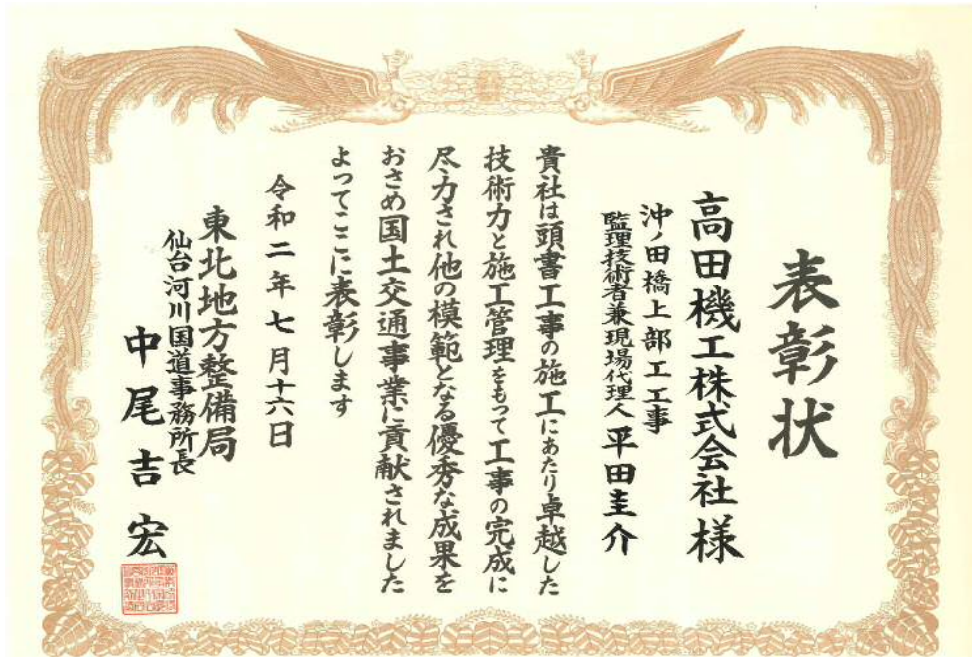 表彰状
高田機工株式会社様
沖ノ田橋上部工工事
監理技術者兼現場代理人 平田圭介
貴社は頭書工事の施工にあたり卓越した
技術力と施工管理をもって工事の完成に
尽力され他の模範となる優秀な成果を
おさめ国土交通事業に貢献されました
よってここに表彰します
令和二年七月十六日
東北地方整備局
仙台河川国道事務所長
中尾吉宏